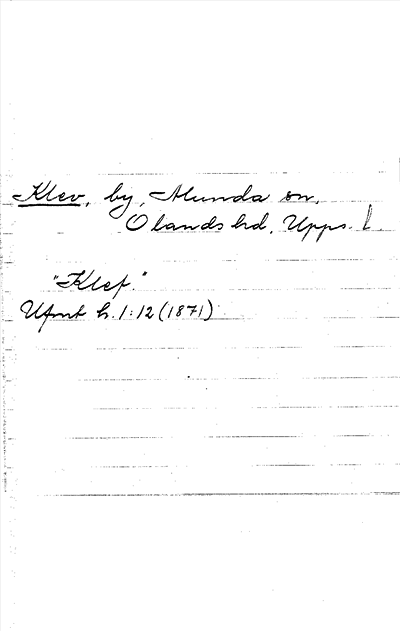 Klev, by, Alunda sn,
Olands hd, Upps. l.
"Klef."
Ufmt h. 1:12 (1871)